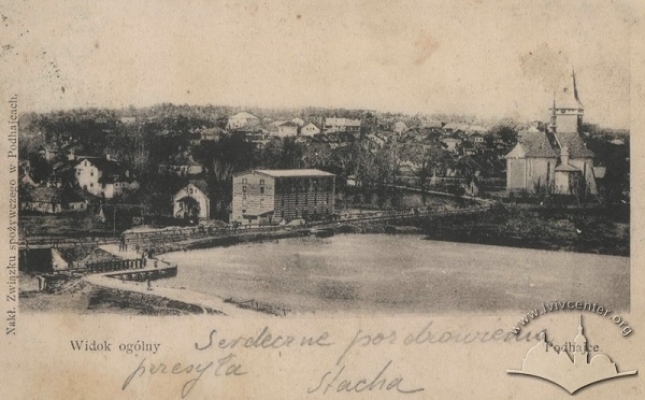 Nakł. Związku spożywczego w Podhajcach.
Widok ogólny
Podhajce.
Serdeczne pozdrowienia
przesyła Stacha
www.lvivcenter.org